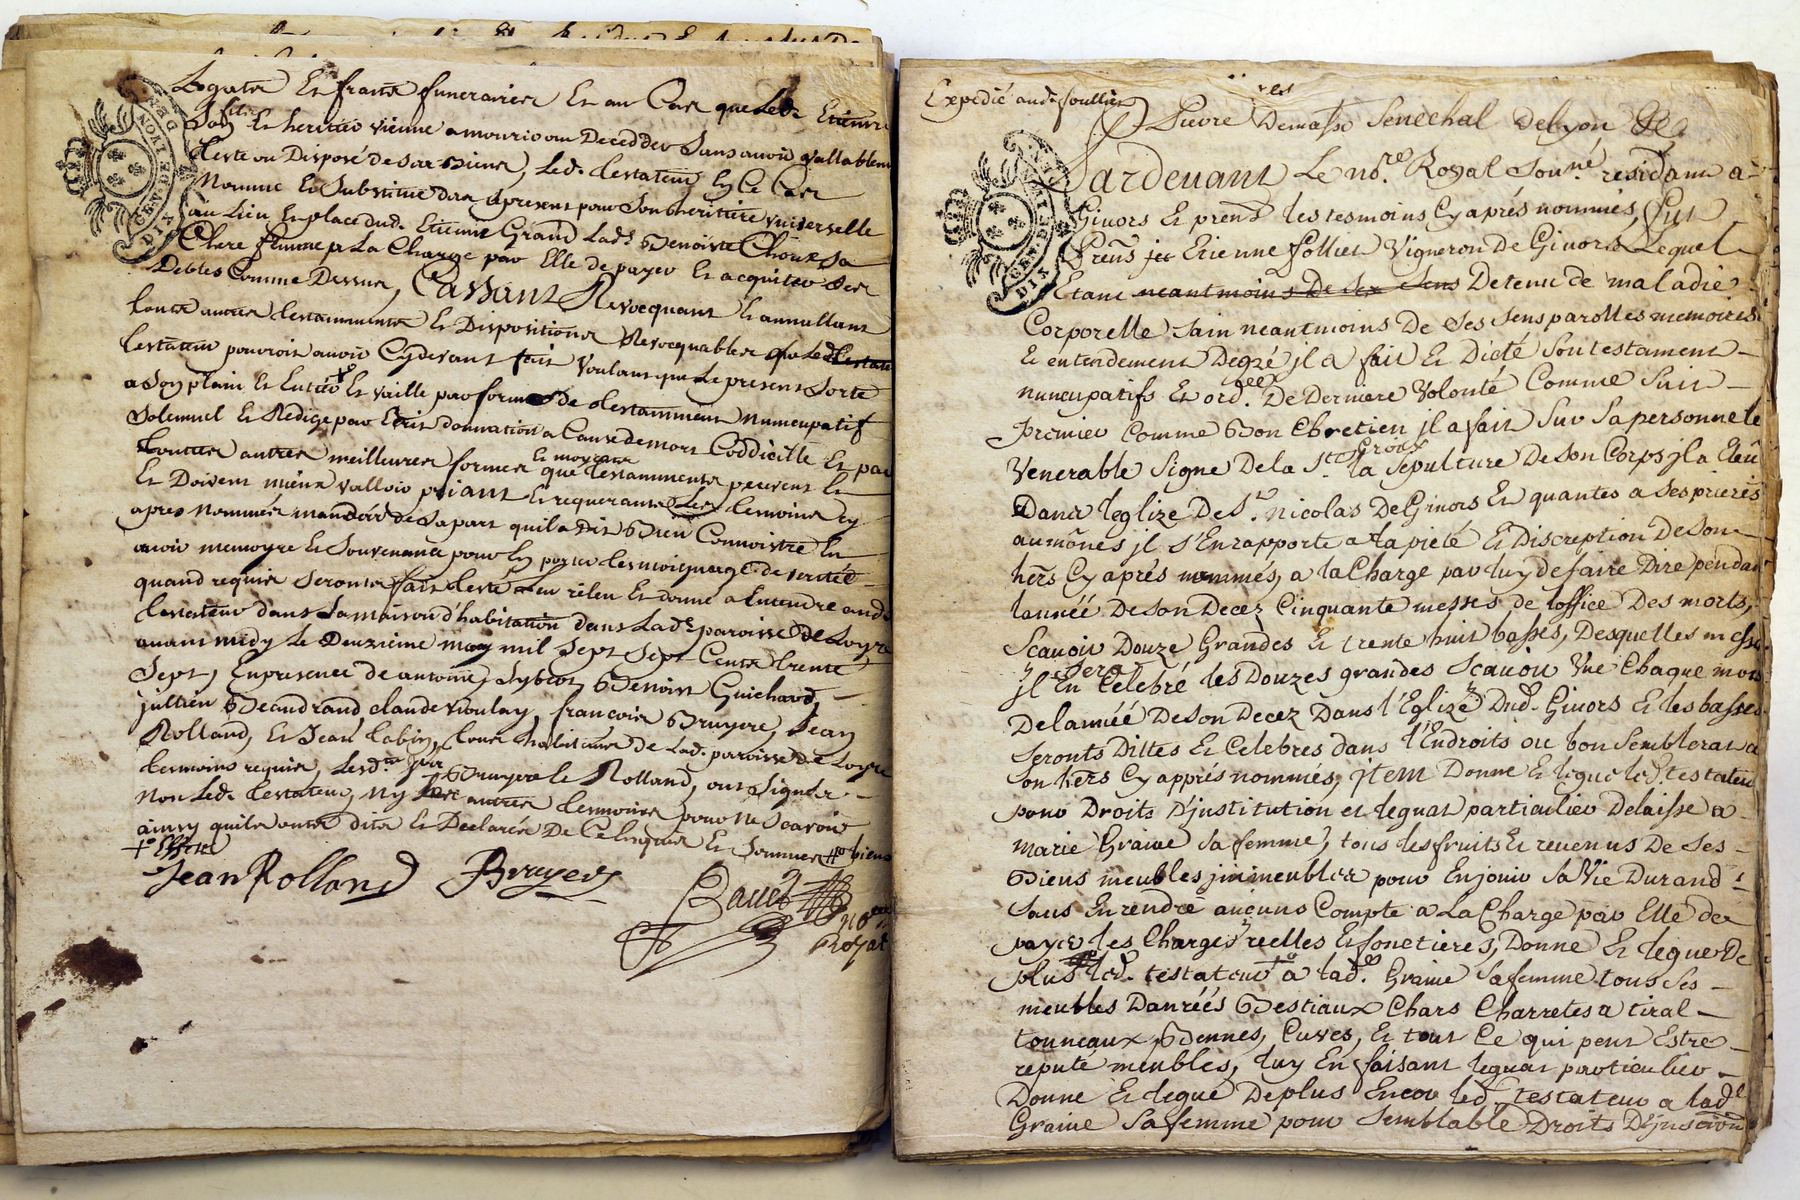 Legats Et frais funeraires Et au Cas que Led. Etienne
fils Et heritier vienne a mourir ou Decedder Sans avoir vallablem
teste ou Disposé de ses Biens, Led. testateur En Ce Cas
Nomme Et Substitue dors et present pour Son heritiere universelle
au Lieu Et place dud. Etienne Grand Lad. Benoiste Choux Sa
Chere femme a La Charge par Elle de payer Et acquiter Ses
Debtes Comme Dessus, Cassant Revocquant Et annullant
toutes autres testamments Et Dispositions Revocquables que Led. testateur
pourroit avoir Cydevant fait Voulant que Le present Sorte
a Son plain Et Entier Et vaille par forme de testamment Nuncupatif
Solemnel Et Redigé par Ecrit donnation a Cause de mort Coddicille Et par
toutes autres meilleures formes Et moyens que testamments peuvent Et
Et Doivent mieux valloir priant Et requerant Les temoins cy
apres Nommés mandés de Sa part quil a dit Bien Connoistre En
avoir memoyre Et Souvenance pour En porter tesmoignage de verité
quand requis Seronts fait Leu releu Et donné a Entendre aud.
testateur dans Sa maison d'habitation dans Lad. paroisse de Loyre
avant midy Le Deuzieme may mil Sept Sept Cents trente
Sept, En presence de antoine, Benoist Guichard,
jullien Beaudrand, claude violay, francois Bruyere, Jean
Rolland, Et Jean Labin, tous habitans de Lad. paroisse de Loyre
temoins requis, Lesd. Bruyere le Rolland, ont Signés
Non Led. testateur, Ny Les autres temoins pour Ne Scavoir
ainsy quils onts dits Et Declarés De Ce Enquis Et Sommés biens
+ Effet
Jean Rolland Bruyere
Bavet
no.re
Royal
Expedié aud. foullier
Pardevant Le no.re Royal Sou.né residant a
Givors Et pren.s les tesmoins Cy aprés nommés, fut
Prens je Etienne follier Vigneron De Givors Lequel
Etant neantmoins De Ses Sens Detenu de maladie
Corporelle Sain neantmoins De Ses Sens parolles memoires
Et entendement Degré jl a fait Et Dicté Son testament
nuncupatifs Et ord. De Derniere Volonté Comme Suit
Premier Comme Bon Chretien jl a fait Sur Sa personne le
Venerable Signe De la S.te Croix la Sepulture De Son Corps jl a Eleu
Dans leglize De S.t nicolas De Givors Et quantes a Ses prieres
aumônes jl S'En rapporte a la pieté Et Discreption De Son
hers Cy aprés nommés, a la Charge par luy de faire Dire pendant
lannéé De Son Decez Cinquante messes de loffice Des morts,
Scavoir Douze Grandes Et trente huit basses, Desquelles messes
jl En Sera Celebré les Douzes grandes Scavoir Vne Chaque mois
De lannéé De Son Decez Dans l'Eglize Dud. Givors Et les basses
Seronts Dittes Et Celebres dans l'Endroits ou bon Semblerat a
Son hers Cy apprés nommés, jtem Donne Et legue led. testateur
pour Droits D'jnstitution et leguat particulier Delaisse a
marie Graine Sa femme, tous les fruits Et revenus De Ses
Biens meubles jmmeubles pour En jouir Sa Vie Durand
Sans En rendre aucuns Compte a La Charge par Elle de
payer les Charges reelles Et fonctieres, Donne Et legue De
plus led. testateur a lad. Graine Sa femme tous Ses
meubles Danréés Bestiaux Chars Charretes a tiral
tonneaux, Bennes, Cuves, Et tout Ce qui peut Estre
reputé meubles, luy En faisant leguat particulier
Donne Et legue De plus Encor led. testateur a lad.
Graine Sa femme pour Semblable Droits D'jnstitution